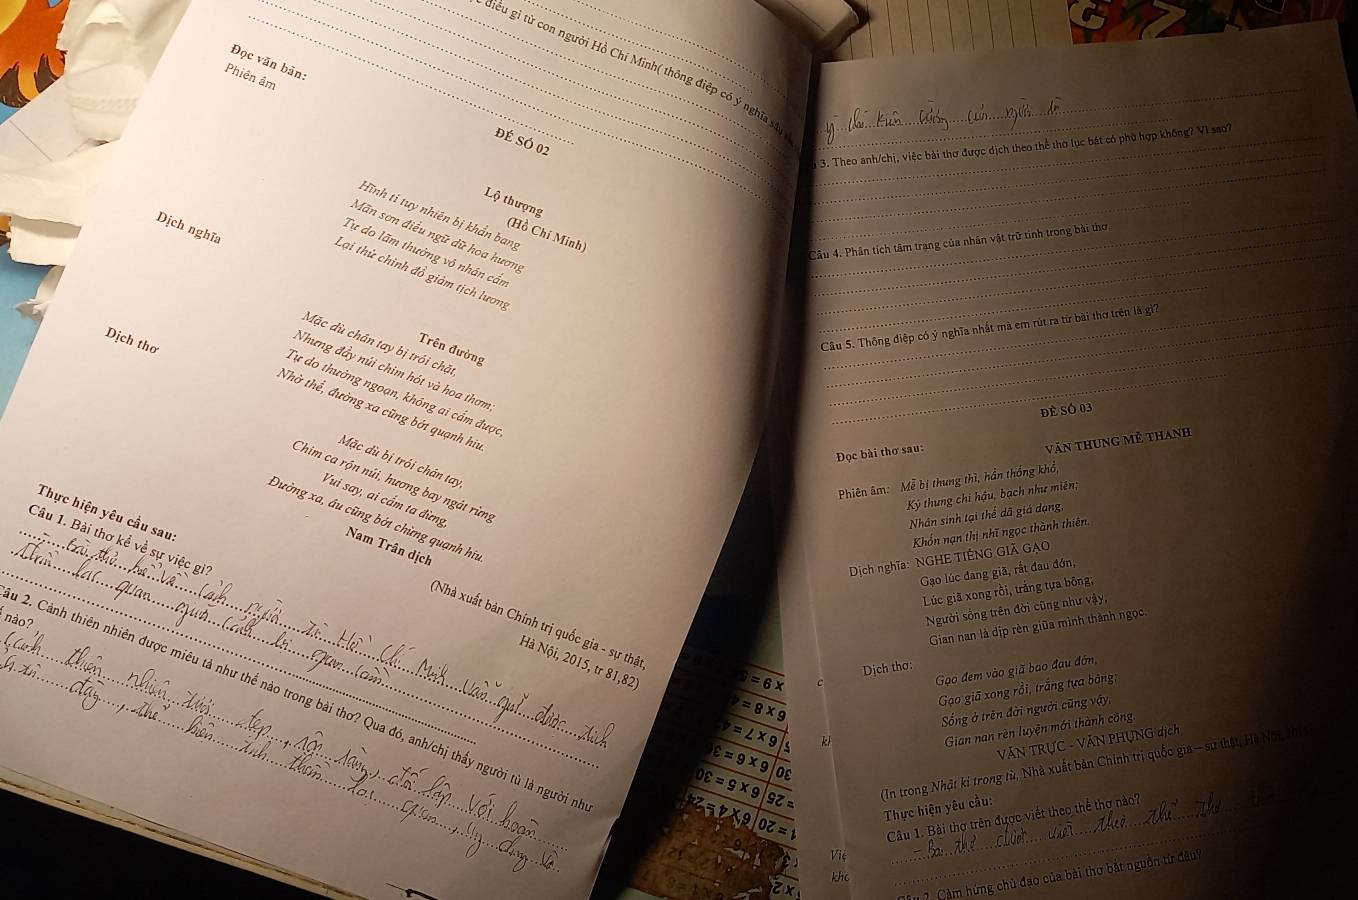 điều gì từ con người Hồ Chí Minh( thông điệp có ý nghĩa sâu
ĐỀ SỐ 02
Đọc văn bản:
Phiên âm
Lộ thượng
(Hồ Chí Minh)
Hĩnh tí tuy nhiên bị khẩn bang
Mãn sơn điểu ngữ dữ hoa hương
Tự do lãm thưởng vô nhân cấm
Lại thử chinh đồ giảm tịch lương
Dịch nghĩa
Trên đường
Mặc dù chân tay bị trói chặt,
Nhưng đầy núi chim hót và hoa thơm;
Tự do thưởng ngoạn, không ai cấm được,
Nhờ thế, đường xa cũng bớt quạnh hiu.
Dịch thơ
Mặc dù bị trói chân tay,
Chim ca rộn núi, hương bay ngát rừng
Vui say, ai cấm ta đừng,
Đường xa, âu cũng bớt chừng quạnh hiu.
Nam Trân dịch
(Nhà xuất bản Chính trị quốc gia - sự thật,
Hà Nội, 2015, tr 81,82)
Thực hiện yêu cầu sau:
Câu 1. Bài thơ kể về sự việc gì?
- Bài thơ kể về cảnh người tù Hồ Chí Minh vẫn giữ được tích
lạc quan
Câu 2. Cảnh thiên nhiên được miêu tả như thế nào trong bài thơ? Qua đó, anh/chị thấy người tù là người như
nào?
Cảnh thiên nhiên tươi đẹp, rộn ràng, đối lập với hoàn
thể hiện tinh thần lạc quan, ý chí
ý chí kiên cường của người tù
3. Theo anh/chị, việc bài thơ được dịch theo thể thơ lục bát có phù hợp không? Vì sao?
Câu 4. Phân tích tâm trạng của nhân vật trữ tình trong bài thơ
Câu 5. Thông điệp có ý nghĩa nhất mà em rút ra từ bài thơ trên là gì?
ĐỀ SỐ 03
Đọc bài thơ sau:
VĂN THUNG MỄ THANH
Phiên âm: Mễ bị thung thì, hẩn thống khổ,
Ký thung chi hậu, bạch như miên;
Nhân sinh tại thế dã giá dạng,
Khốn nạn thị nhĩ ngọc thành thiên.
Dịch nghĩa: NGHE TIẾNG GIÃ GẠO
Gạo lúc đang giã, rất đau đớn,
Lúc giã xong rồi, trắng tựa bông;
Người sống trên đời cũng như vậy,
Gian nan là dịp rèn giũa mình thành ngọc.
Dịch thơ:
Gạo đem vào giã bao đau đớn,
Gạo giã xong rồi, trắng tựa bông;
Sống ở trên đời người cũng vậy,
Gian nan rèn luyện mới thành công.
VĂN TRỰC - VĂN PHỤNG dịch
(In trong Nhật kí trong tù, Nhà xuất bản Chính trị quốc gia – sự thật, Hà Nội,
Thực hiện yêu cầu:
Câu 1. Bài thơ trên được viết theo thể thơ nào?
- Bài thơ được viết theo thể thơ
Cảm hứng chủ đạo của bài thơ bắt nguồn từ đâu?